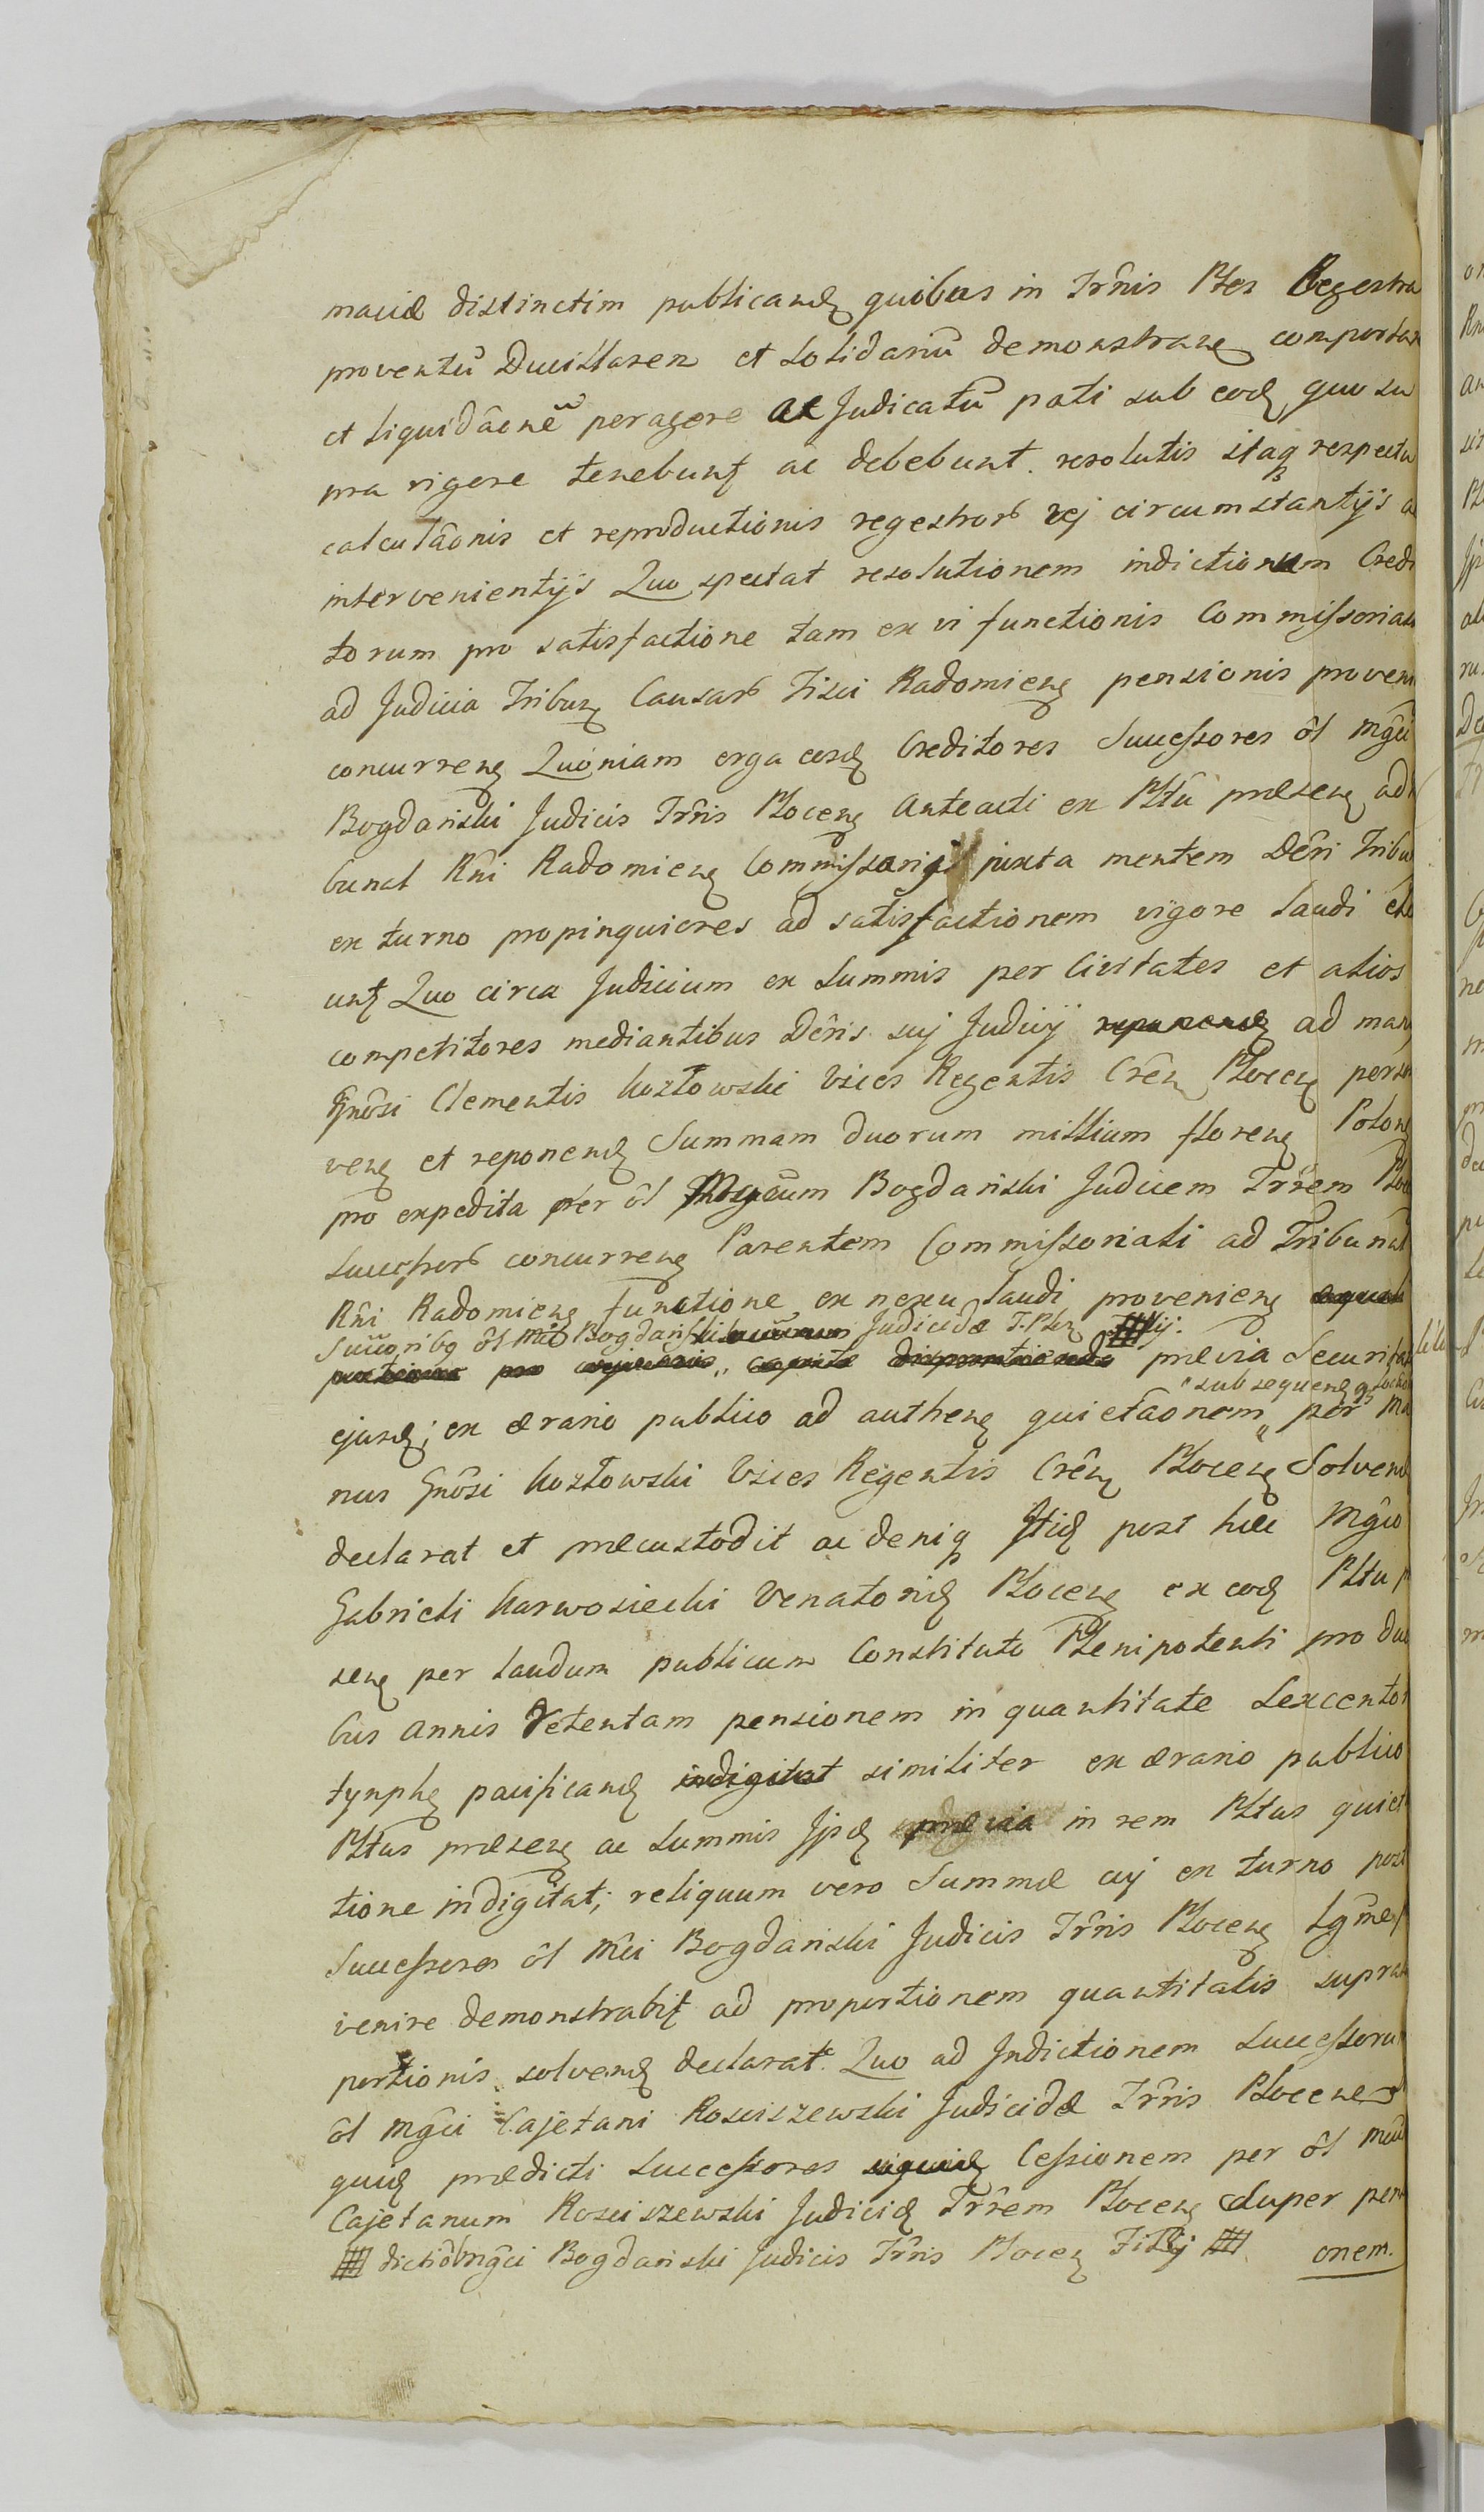 maciæ distinctim publicand quibus in Trñis Ptes Regestra
proventũ Ducillaren et Solidariũ demonstrare comportar
et liquidãcnẽ peragere ac Judicatũ pati sub eod quo su
pra vigore tenebunt ac debebunt. resolutis itaq respectu
calculãonis et reproductionis regestror rej circumstantijs a
intervenientijs Quo spectat resolutionem indictionum Credi
torum pro satisfactione tam ex vi functionis Commissoria
ad Judicia Tribun Causar Fisci Radomien pensionis proveni
concurren Quoniam erga eosd Creditores Successores ol Mgci
Bogdański Judicis Trñis Plocen Anteacti ex Pltũ præsen ad
bunal Rñi Radomien Commissarij juxta mentem Decri Tribu
ex turno propinquiores ad satisfactionem vigore Laudi
unt Quo circa Judicium ex Summis per Civitates et alios
competitores mediantibus Decris suj Judicij reponend ad man
Gnõsi Clementis Kozłowski Vices Regentis Crên Plocen persol
ven et reponend Summam duorum millium floren Polon
pro expedita per ol Mgcum Bogdański Judicem Trrem Ploc
Successor concurren Parentem Commissoriali ad Tribunal
Rñi Radomien functione ex nexu Laudi provenien
Succoribq ol Mci Bogdański Judicidæ T. Plen lij.
prævia Securitat
subsequen
ejusd; ex ærario publico ad authen quietãonem per ma
nus Gnõsi Kozłowski Vices Regentis Crên Plocen Solvend
declarat et præcustodit ac deniq Itid post hæc Mgco
Gabrieli Karwosiecki Venatorid Plocen ex eod Pltu p
sen per Laudum publicum Constituto Plenipotenti pro duo
bus annis retentam pensionem in quantitate Sexcentor
tynph pacificand indigitat similiter ex ærario publico
Pltus præsen ac Summis Ipd prævia in rem Pltus quiet
tione indigitat; reliquum vero Summæ cuj ex turno post
Successores ol Mci Bogdański Judicis Trñis Plocen
venire demonstrabit ad proportionem quantitatis supra
portionis solvend declarat. Quo ad Indictionem Successoru
ol Mgci Cajetani Rosciszewski Judicidæ Trñis Plocen
quid prædicti Successores Cessionem per ol Mcũ
Cajetanum Rosciszewski Judicid Trrem Plocen Super pen
dicti ol Mgci Bogdański Judicis Trñis Plocen Filij
onem.